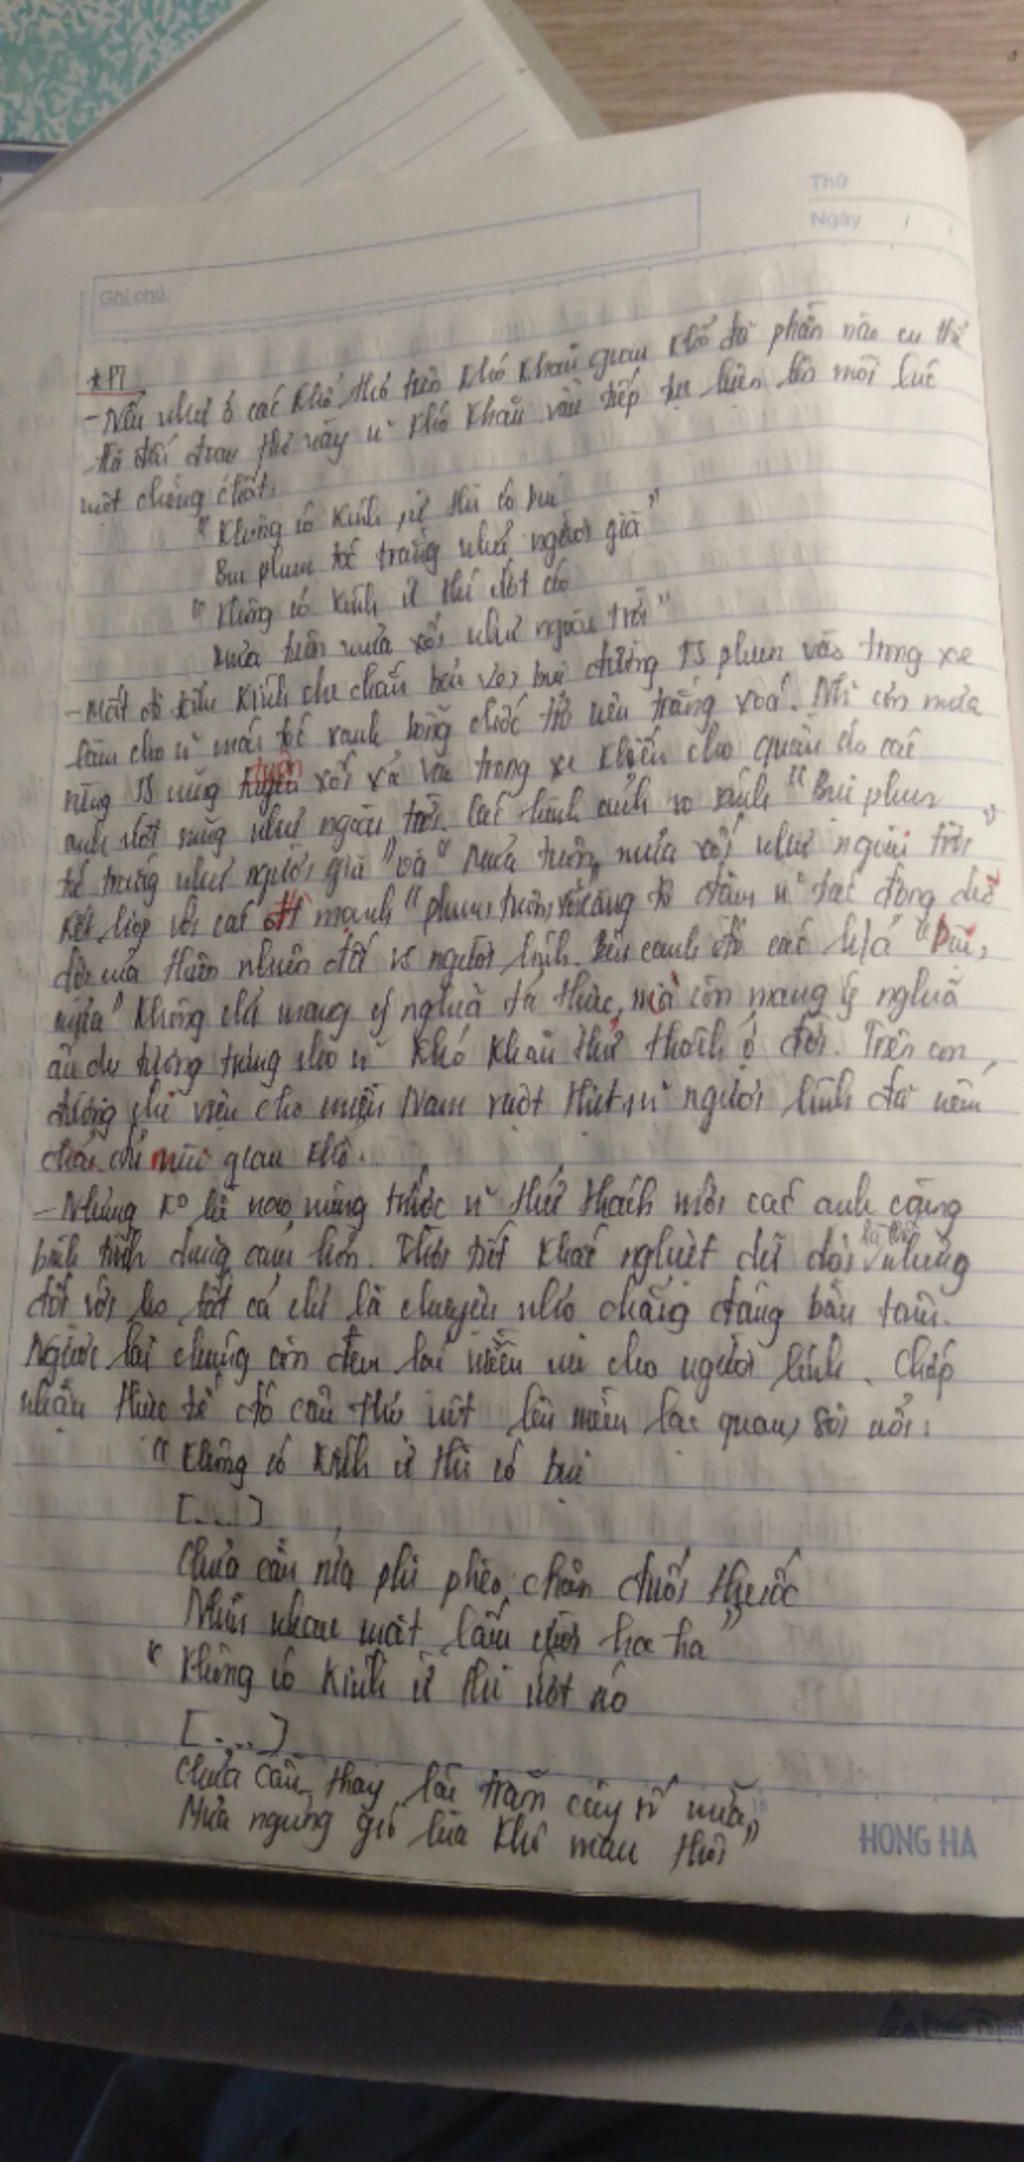 Thứ
Ngày / /
Ghi chú:
* PT
- Nếu như ở các khổ thơ trên khó khăn gian khổ đã phần nào cụ thể
thì đến đoạn thơ này n~ khó khăn vẫn tiếp tục hiện lên mỗi lúc
một chồng chất.
" Không có kính, ừ thì có bụi
Bụi phun tóc trắng như người già "
" Không có kính ừ thì ướt áo
Mưa tuôn mưa xối như ngoài trời "
- Mất đi tấm kính che chắn bởi vậy bụi đường TS phun vào trong xe
làm cho n~ mái tóc xanh bỗng chốc trở nên trắng xoá. Rồi cơn mưa
rừng TS cũng tuôn xối xả vào trong xe khiến cho quần áo các
anh ướt sũng như ngoài trời. Các hình ảnh so sánh " Bụi phun
tóc trắng như người già " và " Mưa tuôn, mưa xối như ngoài trời "
kết hợp với các ĐT mạnh " phun, tuôn, xối càng tô đậm n~ tác động dữ
dội của thiên nhiên đối vs người lính. Bên cạnh đó các h/á " Bụi,
mưa " không chỉ mang ý nghĩa tả thực, mà còn mang ý nghĩa
ẩn dụ tượng trưng cho n~ khó khăn thử thách ở đời. Trên con
đường chi viện cho miền Nam ruột thịt, n~ người lính đã nếm
trải đủ mùi gian khổ.
- Nhưng ko hề nao núng trước n~ thử thách mới các anh càng
bình tĩnh dũng cảm hơn. Thời tiết khắc nghiệt dữ dội là thế nhưng
đối với họ tất cả chỉ là chuyện nhỏ chẳng đáng bận tâm.
Ngược lại chúng còn đem lại niềm vui cho người lính. Chấp
nhận thực tế đó câu thơ vút lên niềm lạc quan, sôi nổi:
" Không có kính ừ thì có bụi
[...]
Chưa cần rửa phì phèo châm điếu thuốc
Nhìn nhau mặt lấm cười ha ha "
" Không có kính ừ thì ướt áo
[...]
Chưa cần thay, lái trăm cây số nữa
Mưa ngừng gió lùa khô mau thôi "
HONG HA